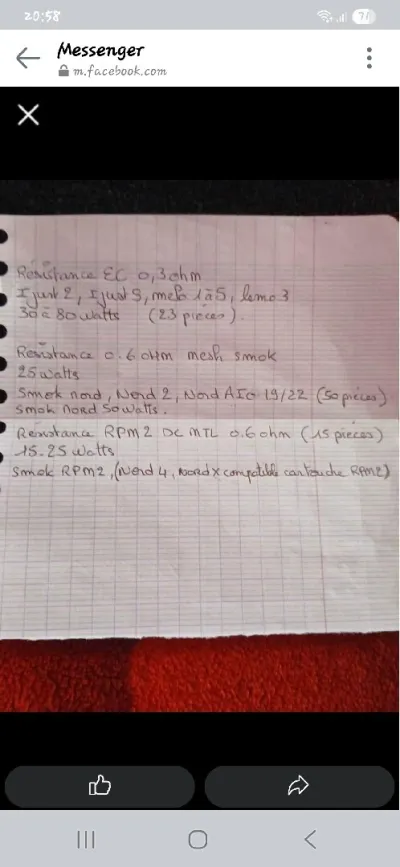 20:58
71
Messenger
m.facebook.com
Résistance EC 0,3 ohm
Ijust 2, Ijust S, melo 1 à 5, lemo 3
30 à 80 watts (23 pièces).
Résistance 0.6 ohm mesh smok
25 watts
Smok nord, Nord 2, Nord AIO 19/22 (50 pièces)
smok nord 50 watts.
Résistance RPM2 DC MTL 0.6 ohm (15 pièces)
15.25 watts
Smok RPM2, (Nord 4, Nord X compatible cartouche RPM2)